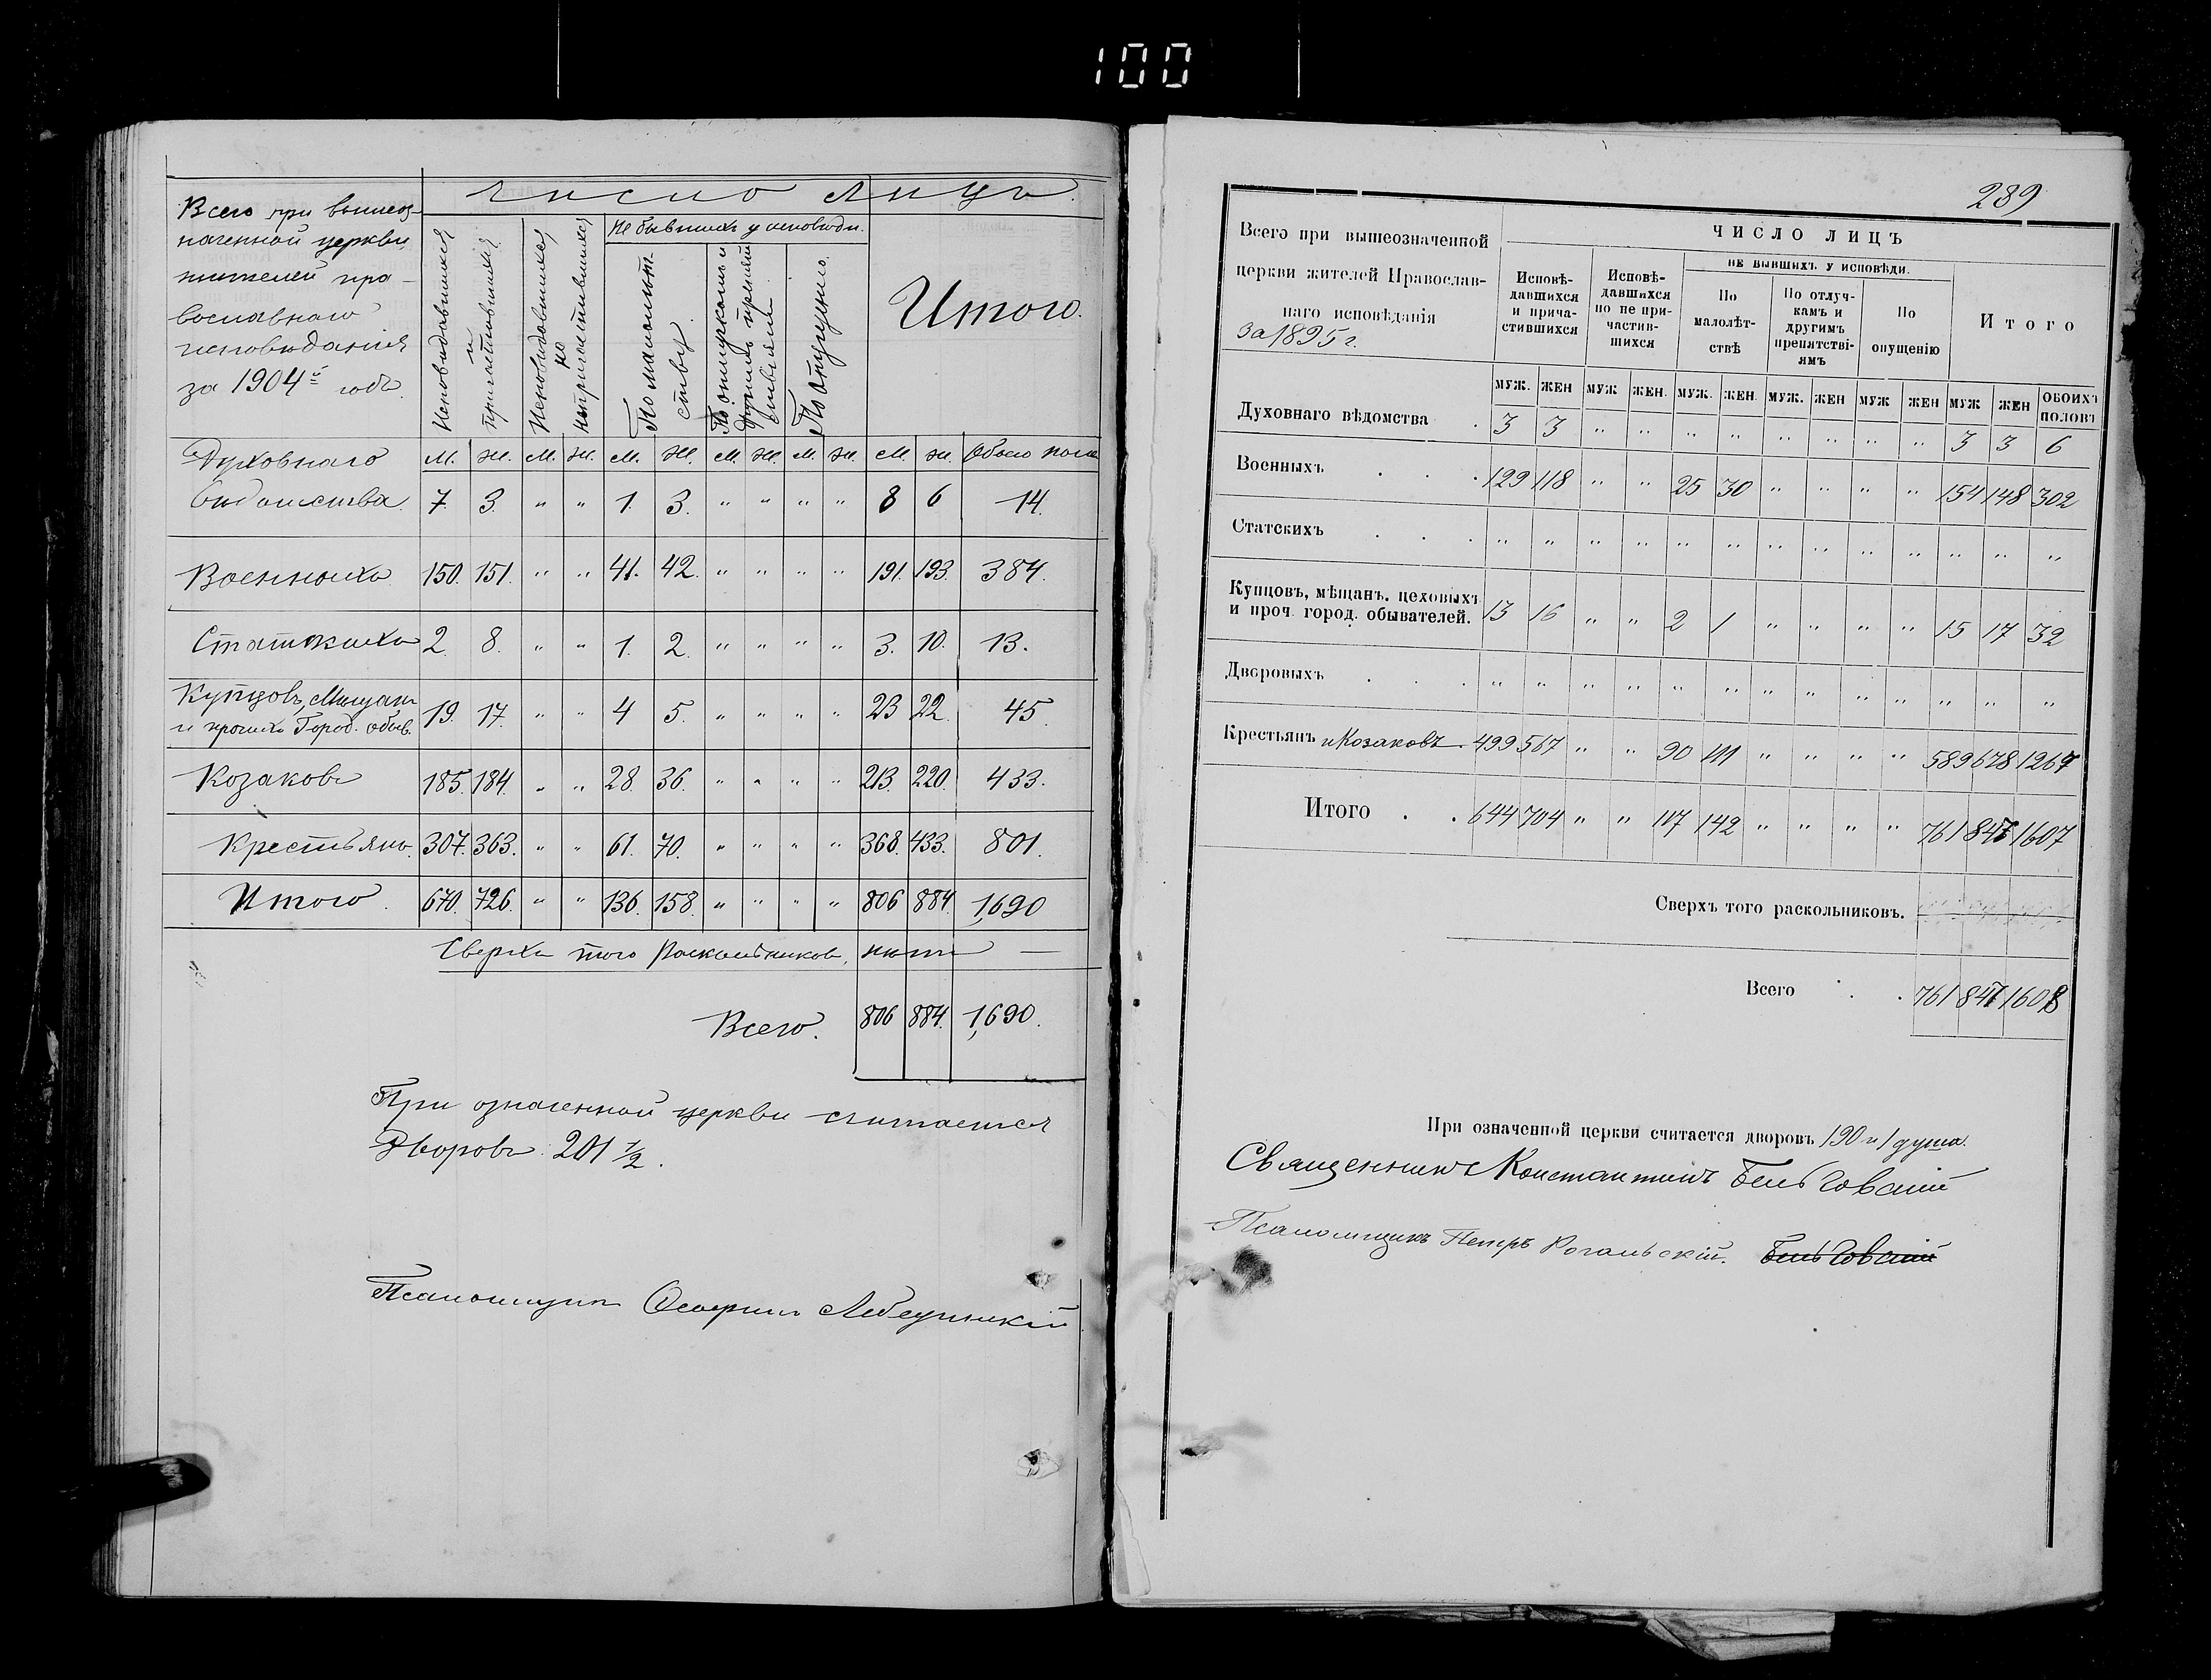 100
Всего при вышеоз-
наченной церкви
жителей пра-
вославнаго
исповѣданія
за 1904й годъ.
Число лицъ.
Исповѣдавшихся и причастившихся
Исповѣдавшихся но непричастившихся
Не бывшихъ у исповѣди.
По малолѣтству
По отлучкамъ и другимъ препятствіямъ
По опущенію.
Итого.
М. Ж. М. Ж. М. Ж. М. Ж. М. Ж. М. Ж. Обоего пола
Духовнаго
вѣдомства. 7. 3. " " 1. 3. " " " " 8 6 14.
Военныхъ 150. 151. " " 41. 42. " " " " 191. 193. 384.
Статскихъ 2. 8. " " 1. 2. " " " " 3. 10. 13.
Купцовъ, Мещанъ
и прочихъ Город. обыв. 19. 17. " " 4 5. " " " " 23 22. 45.
Козаковъ 185. 184. " " 28. 36. " " " " 213. 220. 433.
Крестьянъ. 307. 363. " " 61. 70. " " " " 368. 433. 801.
Итого. 670. 726. " " 136. 158. " " " " 806 884. 1,690
Сверхъ того Раскольниковъ, нѣтъ —
Всего. 806 884. 1,690.
При означенной церкви считается
Дворовъ. 201 ½.
Псаломщикъ
289
Всего при вышеозначенной
церкви жителей Православ-
наго исповѣданія
за 1895 г.
ЧИСЛО ЛИЦЪ
Исповѣ-
давшихся
и прича-
стившихся
Исповѣ-
давшихся
но не при-
частив-
шихся
НЕ БЫВШИХЪ У ИСПОВѢДИ.
По
малолѣт-
ствѣ
По отлуч-
камъ и
другимъ
препятстві-
ямъ
По
опущенію
Итого
МУЖ. ЖЕН МУЖ ЖЕН. МУЖ. ЖЕН. МУЖ. ЖЕН МУЖ ЖЕН МУЖ ЖЕН ОБОИХЪ
ПОЛОВЪ
Духовнаго вѣдомства . 3 3 " " " " " " " " 3 3 6
Военныхъ . . . 129 118 " " 25 30 " " " " 154 148 302
Статскихъ . . . " " " " " " " " " " " " "
Купцовъ, мѣщанъ. цеховыхъ
и проч. город. обывателей. 13 16 " " 2 1 " " " " 15 17 32
Дворовыхъ . . . " " " " " " " " " " " " "
Крестьянъ и Козаковъ. 499 567 " " 90 111 " " " " 589 678 1267
Итого . . 644 704 " " 117 142 " " " " 761 846 1607
Сверхъ того раскольниковъ.
Всего . . 761 847 1608
При означенной церкви считается дворовъ 190 и 1 душа.
Священникъ Константинъ
Псаломщикъ Петръ Рогальскій.